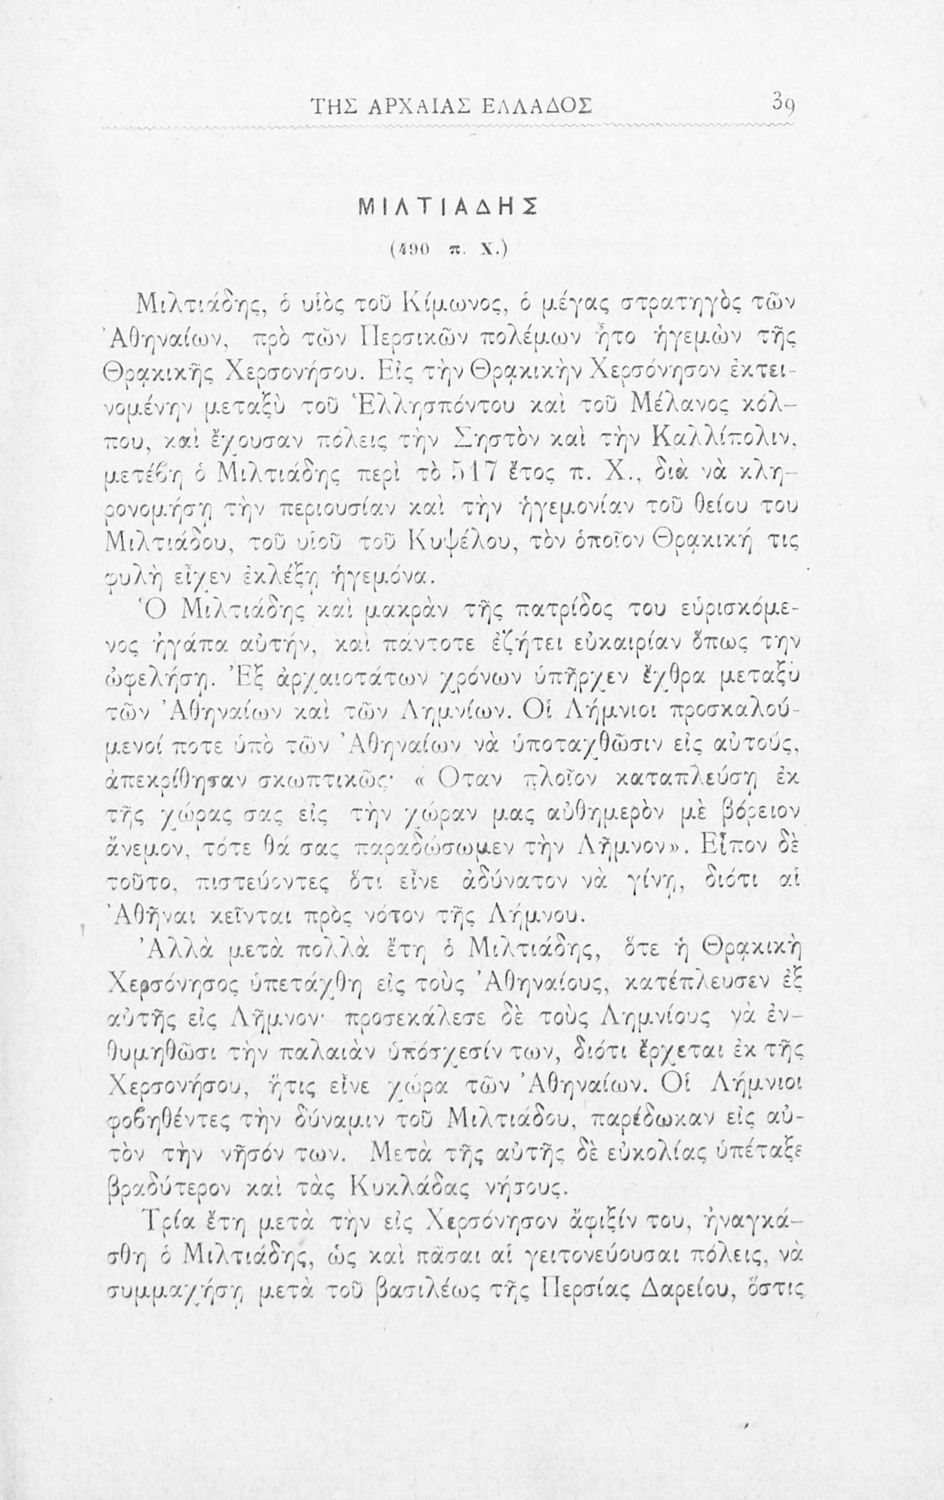 ΤΗΣ ΑΡΧΑΙΑΣ ΕΛΛΑΔΟΣ 39
ΜΙΛΤΙΑΔΗΣ
(490 π. Χ.)
Μιλτιάδης, ὁ υἱὸς τοῦ Κίμωνος, ὁ μέγας στρατηγὸς τῶν
Ἀθηναίων, πρὸ τῶν Περσικῶν πολέμων ἦτο ἡγεμὼν τῆς
Θρᾳκικῆς Χερσονήσου. Εἰς τὴν Θρᾳκικὴν Χερσόνησον ἐκτει-
νομένην μεταξὺ τοῦ Ἑλλησπόντου καὶ τοῦ Μέλανος κόλ-
που, καὶ ἔχουσαν πόλεις τὴν Σηστὸν καὶ τὴν Καλλίπολιν,
μετέβη ὁ Μιλτιάδης περὶ τὸ 517 ἔτος π. Χ., διὰ νὰ κλη-
ρονομήσῃ τὴν περιουσίαν καὶ τὴν ἡγεμονίαν τοῦ θείου του
Μιλτιάδου, τοῦ υἱοῦ τοῦ Κυψέλου, τὸν ὁποῖον Θρᾳκική τις
φυλὴ εἶχεν ἐκλέξῃ ἡγεμόνα.
Ὁ Μιλτιάδης καὶ μακρὰν τῆς πατρίδος του εὑρισκόμε-
νος ἠγάπα αὐτήν, καὶ πάντοτε ἐζήτει εὐκαιρίαν ὅπως την
ὠφελήσῃ. Ἐξ ἀρχαιοτάτων χρόνων ὑπῆρχεν ἔχθρα μεταξὺ
τῶν Ἀθηναίων καὶ τῶν Λημνίων. Οἱ Λήμνιοι προσκαλού-
μενοί ποτε ὑπὸ τῶν Ἀθηναίων νὰ ὑποταχθῶσιν εἰς αὐτούς,
ἀπεκρίθησαν σκωπτικῶς· « Οταν πλοῖον καταπλεύσῃ ἐκ
τῆς χώρας σας εἰς τὴν χώραν μας αὐθημερὸν μὲ βόρειον
ἄνεμον, τότε θά σας παραδώσωμεν τὴν Λῆμνον». Εἶπον δὲ
τοῦτο, πιστεύοντες ὅτι εἶνε ἀδύνατον νὰ γίνῃ, διότι αἱ
Ἀθῆναι κεῖνται πρὸς νότον τῆς Λήμνου.
Ἀλλὰ μετὰ πολλὰ ἔτη ὁ Μιλτιάδης, ὅτε ἡ Θρᾳκικὴ
Χερσόνησος ὑπετάχθη εἰς τοὺς Ἀθηναίους, κατέπλευσεν ἐξ
αὐτῆς εἰς Λῆμνον· προσεκάλεσε δὲ τοὺς Λημνίους νὰ ἐν-
θυμηθῶσι τὴν παλαιὰν ὑπόσχεσίν των, διότι ἔρχεται ἐκ τῆς
Χερσονήσου, ἥτις εἶνε χώρα τῶν Ἀθηναίων. Οἱ Λήμνιοι
φοβηθέντες τὴν δύναμιν τοῦ Μιλτιάδου, παρέδωκαν εἰς αὐ-
τὸν τὴν νῆσόν των. Μετὰ τῆς αὐτῆς δὲ εὐκολίας ὑπέταξε
βραδύτερον καὶ τὰς Κυκλάδας νήσους.
Τρία ἔτη μετὰ τὴν εἰς Χερσόνησον ἄφιξίν του, ἠναγκά-
σθη ὁ Μιλτιάδης, ὡς καὶ πᾶσαι αἱ γειτονεύουσαι πόλεις, νὰ
συμμαχήσῃ μετὰ τοῦ βασιλέως τῆς Περσίας Δαρείου, ὅστις